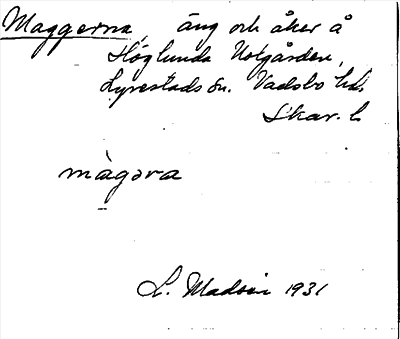 Maggerna, äng och åker å
Höglunda Nolgården,
Lyrestads sn. Vadsbo hd.
Skar. l.
màgəra
L. Madsén 1931